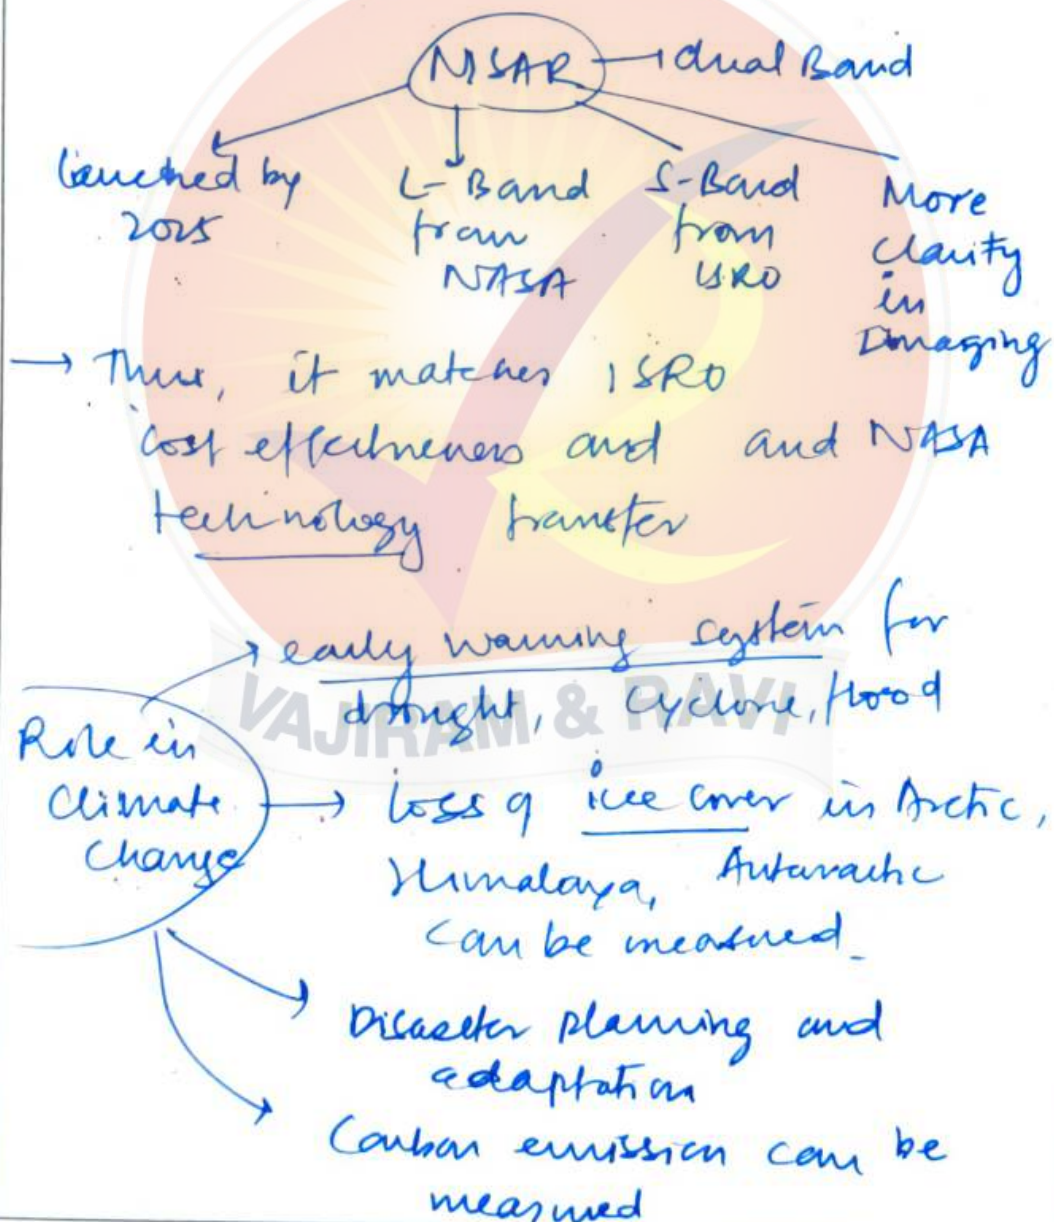 NISAR → dual Band
Launched by
2025
L-Band
from
NASA
S-Band
from
ISRO
More
Clarity
in
Imaging
→ Thus, it matches ISRO
cost effectiveness and and NASA
technology transfer
Role in
Climate
Change
→ early warning system for
drought, cyclone, flood
→ loss of ice cover in Arctic,
Himalaya, Antaractic
can be measured.
Disaster planning and
adaptation
Carbon emission can be
measured
VAJIRAM & RAVI